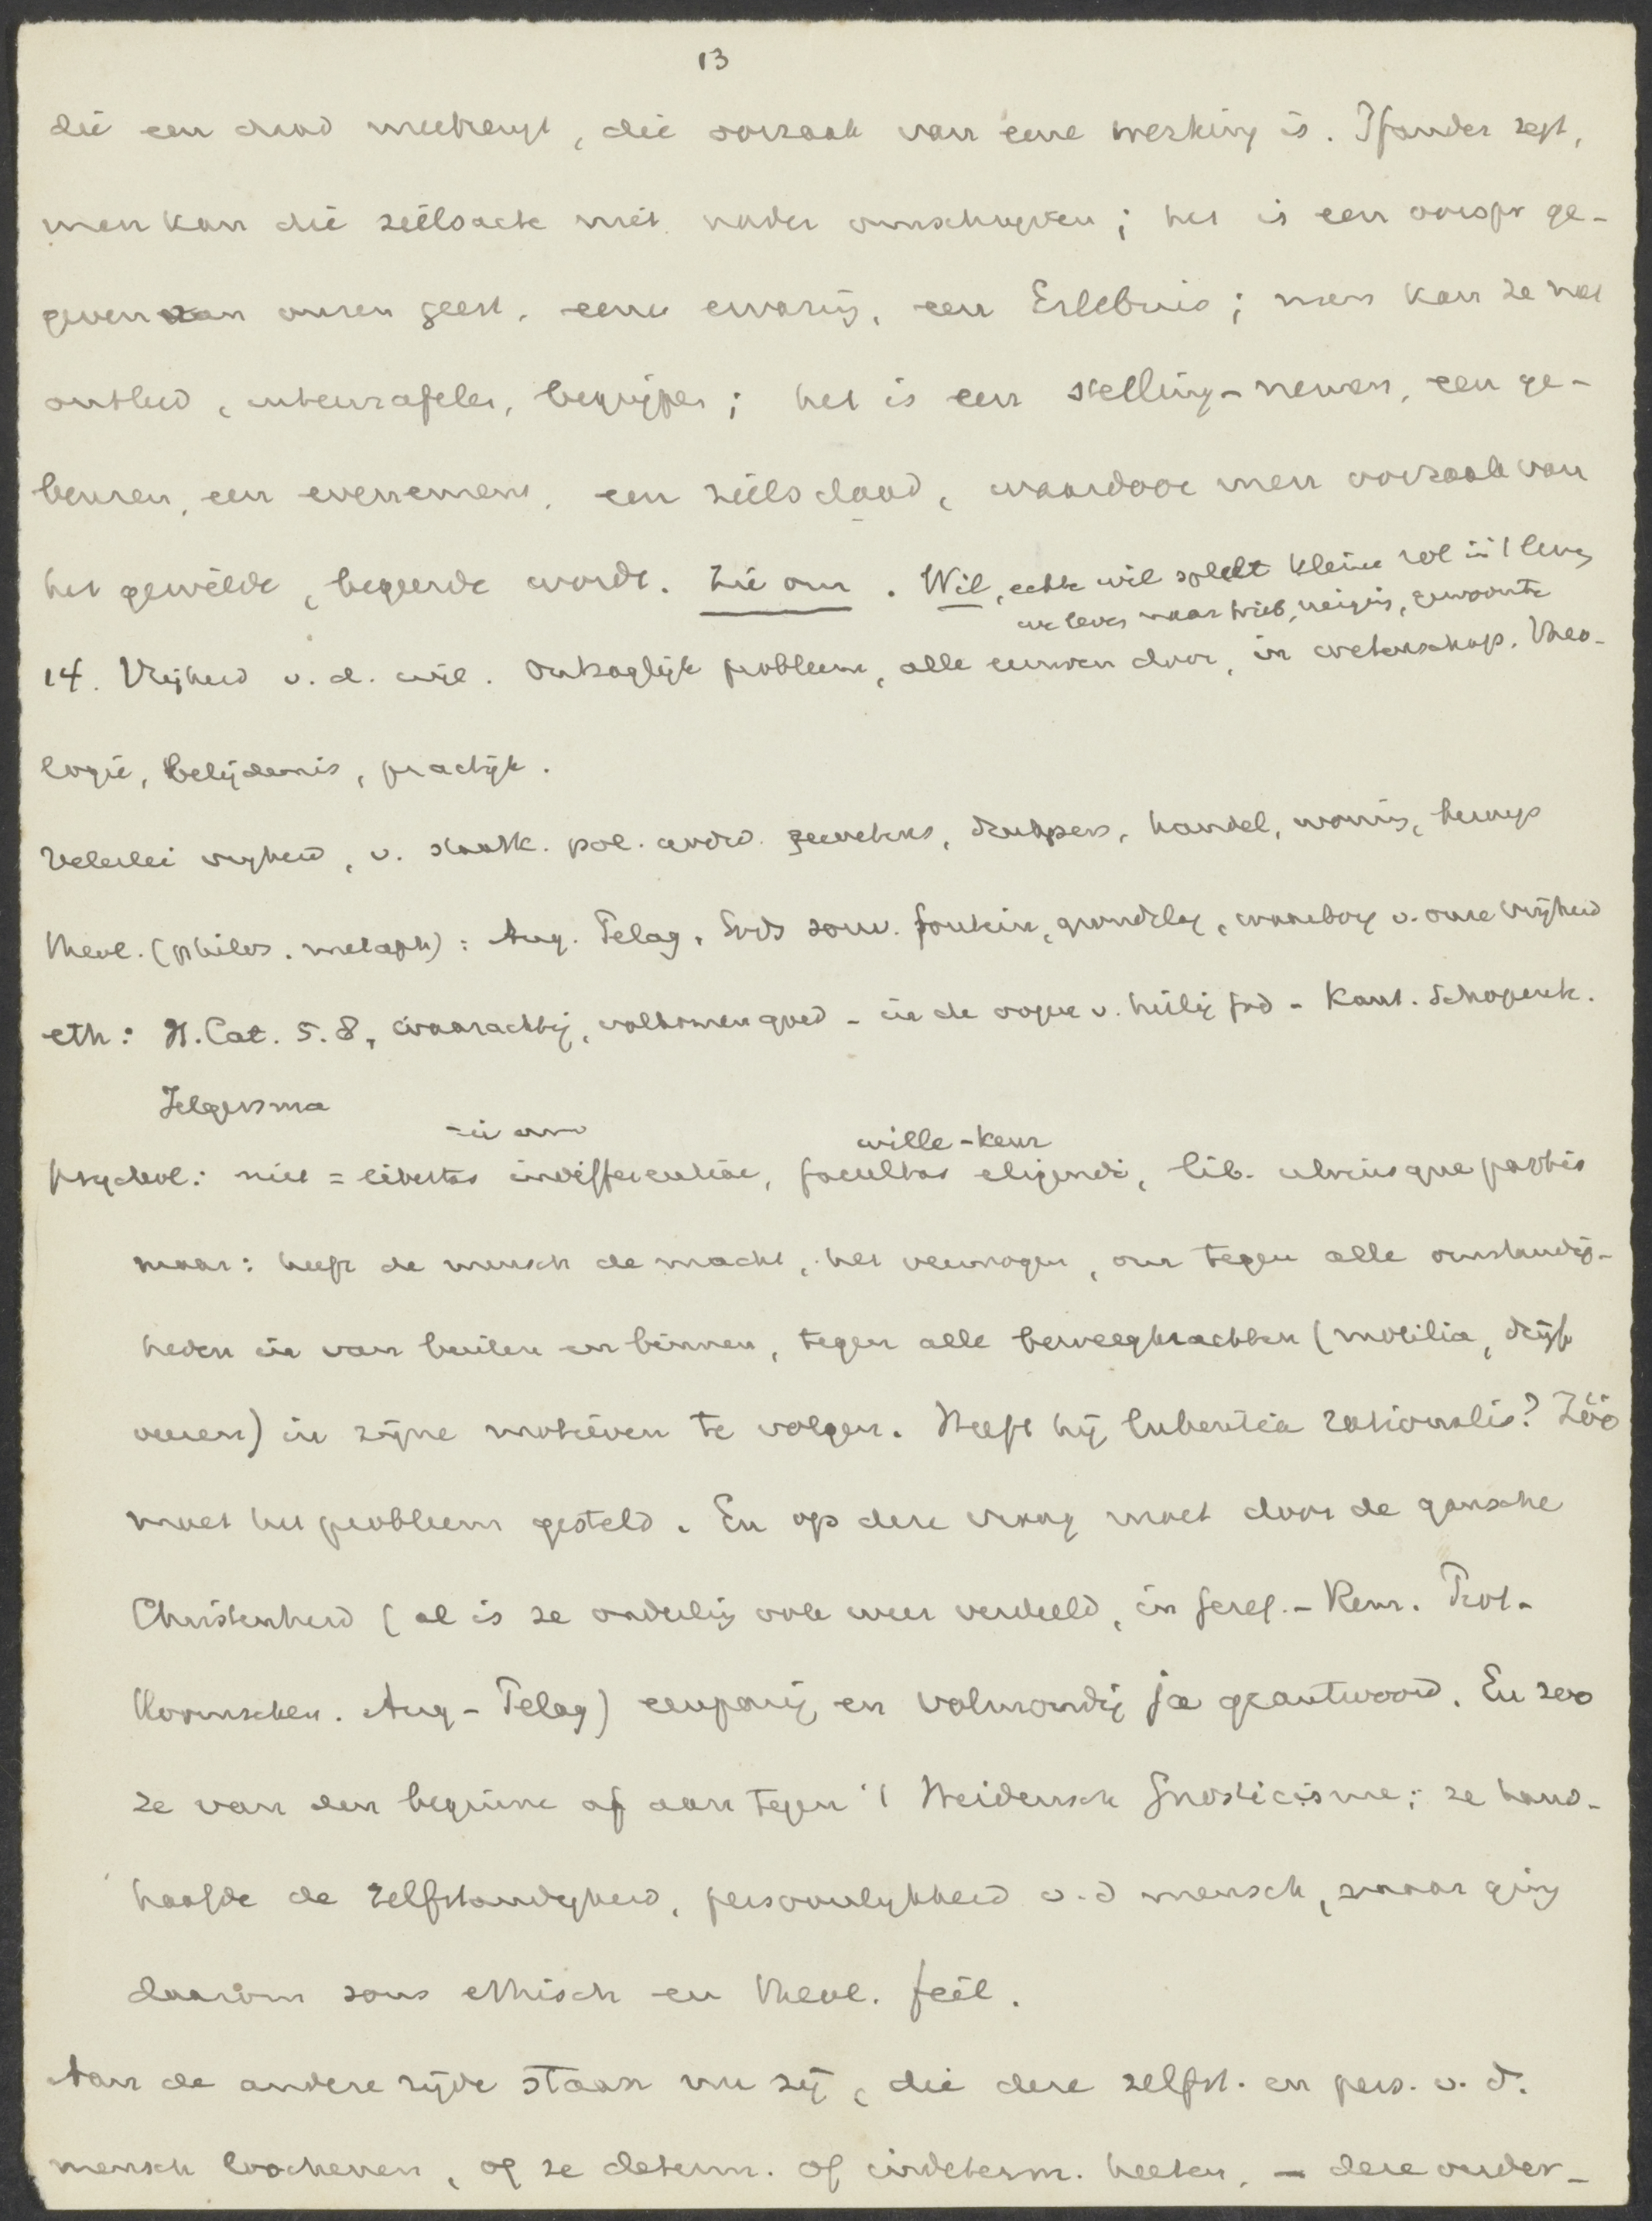 13
die een daad meebrengt, die oorzaak van eene werking is. Pfänder zegt,
men kan die zielsacte niet nader omschryven; het is een oorspr ge-
geven van onzen geest, eene ervaring, een Erlebnis; men kan ze niet
ontleed, uiteenrafelen, begrijpen; het is een stelling-nemen, een ge-
beuren, een evenement, een zielsdaad, waardoor men oorzaak van
het gewilde, begeerde wordt. Zie om. Wil, echte wil speelt kleine rol in 't leven
we leven naar trieb, neiging, gewoonte
14. Vrijheid v. d. wil. Ontzaglijk probleem, alle eeuwen door, in wetenschap, theo-
logie, belijdenis, practijk.
Velerlei vryheid, v. staatk. pol. gewetens, drukpers, handel, woning, beweg
theol. (philos. metaph): Aug. Pelag. Gods souv. fontein, grondslag, waarborg v. onze vrijheid
eth: H. Cat. 5. 8, waarachtig, volkomen goed - in de oogen v. heilig God - Kant. Schopenh.
Jelgersma
wille-keur
psychol: niet = libertas indifferentiae, facultas eligendi, lib. utriusque partis
maar: heeft de mensch de macht, het vermogen, om tegen alle omstandig-
heden in van buiten en binnen, tegen alle beweegkrachten (mobilia, drijf
veeren) in zijne motieven te volgen. Heeft hij lubentia rationalis? Zóó
moet het probleem gesteld. En op deze vraag moet door de gansche
Christenheid (al is ze onderling ook weer verdeeld, in Geref. - Rem. Prot-
Roomschen. Aug - Pelag) eenparig en volmondig ja geantwoord. En zoo
ze van den beginne af aan tegen 't Heidensch Gnosticisme; ze hand-
haafde de zelfstandigheid, persoonlykheid v.d mensch, maar ging
daarom soms ethisch en theol. feil.
Aan de andere zijde staan nu zij, die deze zelfst. en pers. v. d.
mensch loochenen, of ze determ. of indeterm. heeten, - deze onder-